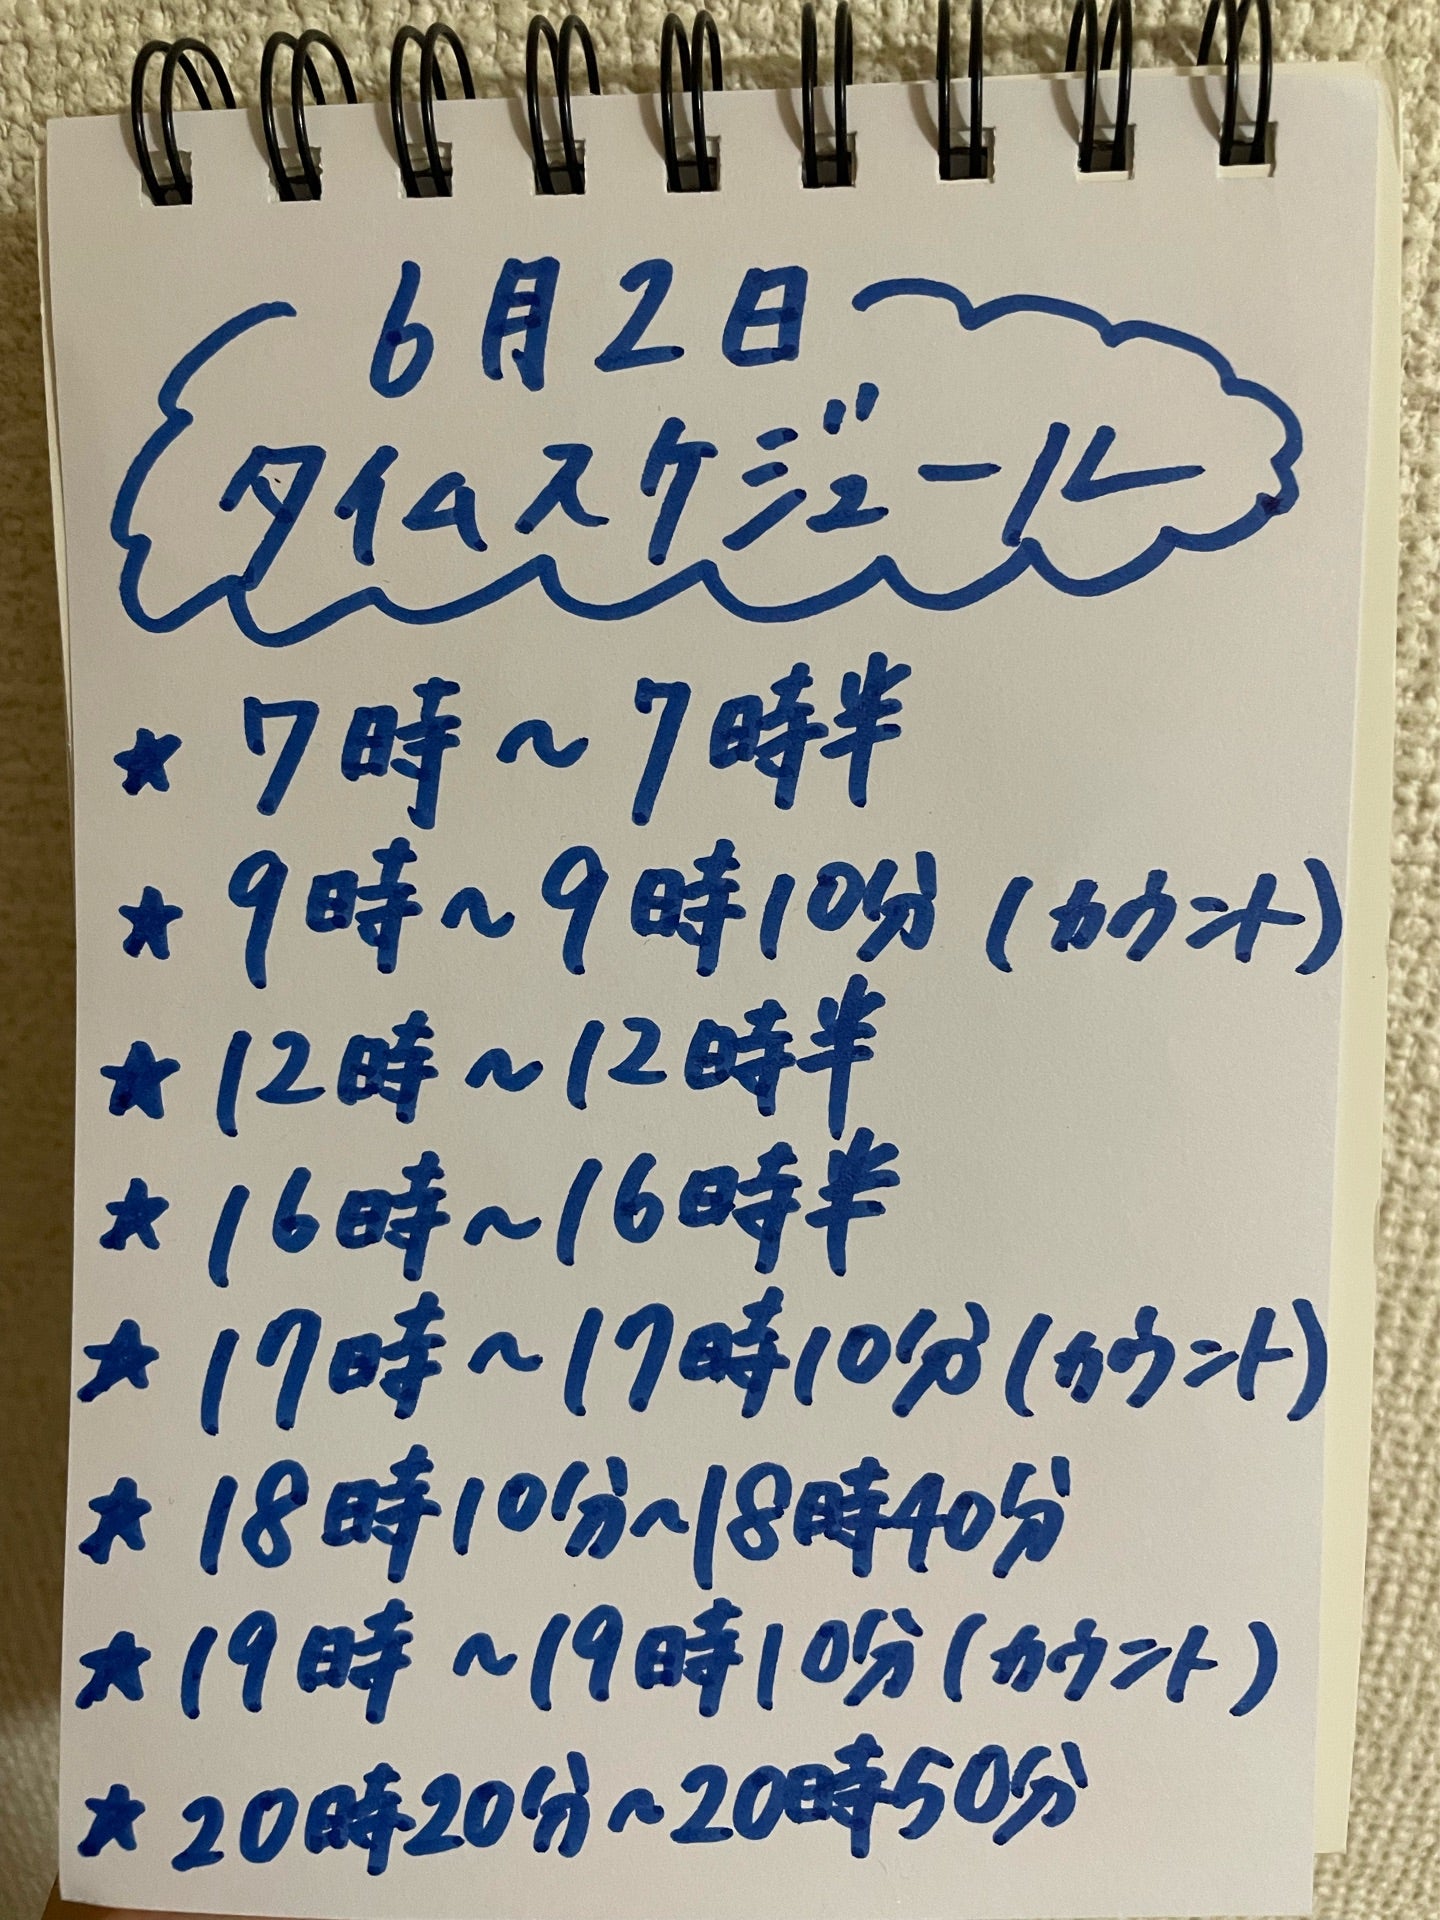 6月2日
タイムスケジュール
★ 7時～7時半
★ 9時～9時10分(カウント)
★ 12時～12時半
★ 16時～16時半
★ 17時～17時10分(カウント)
★ 18時10分～18時40分
★ 19時～19時10分(カウント)
★ 20時20分～20時50分